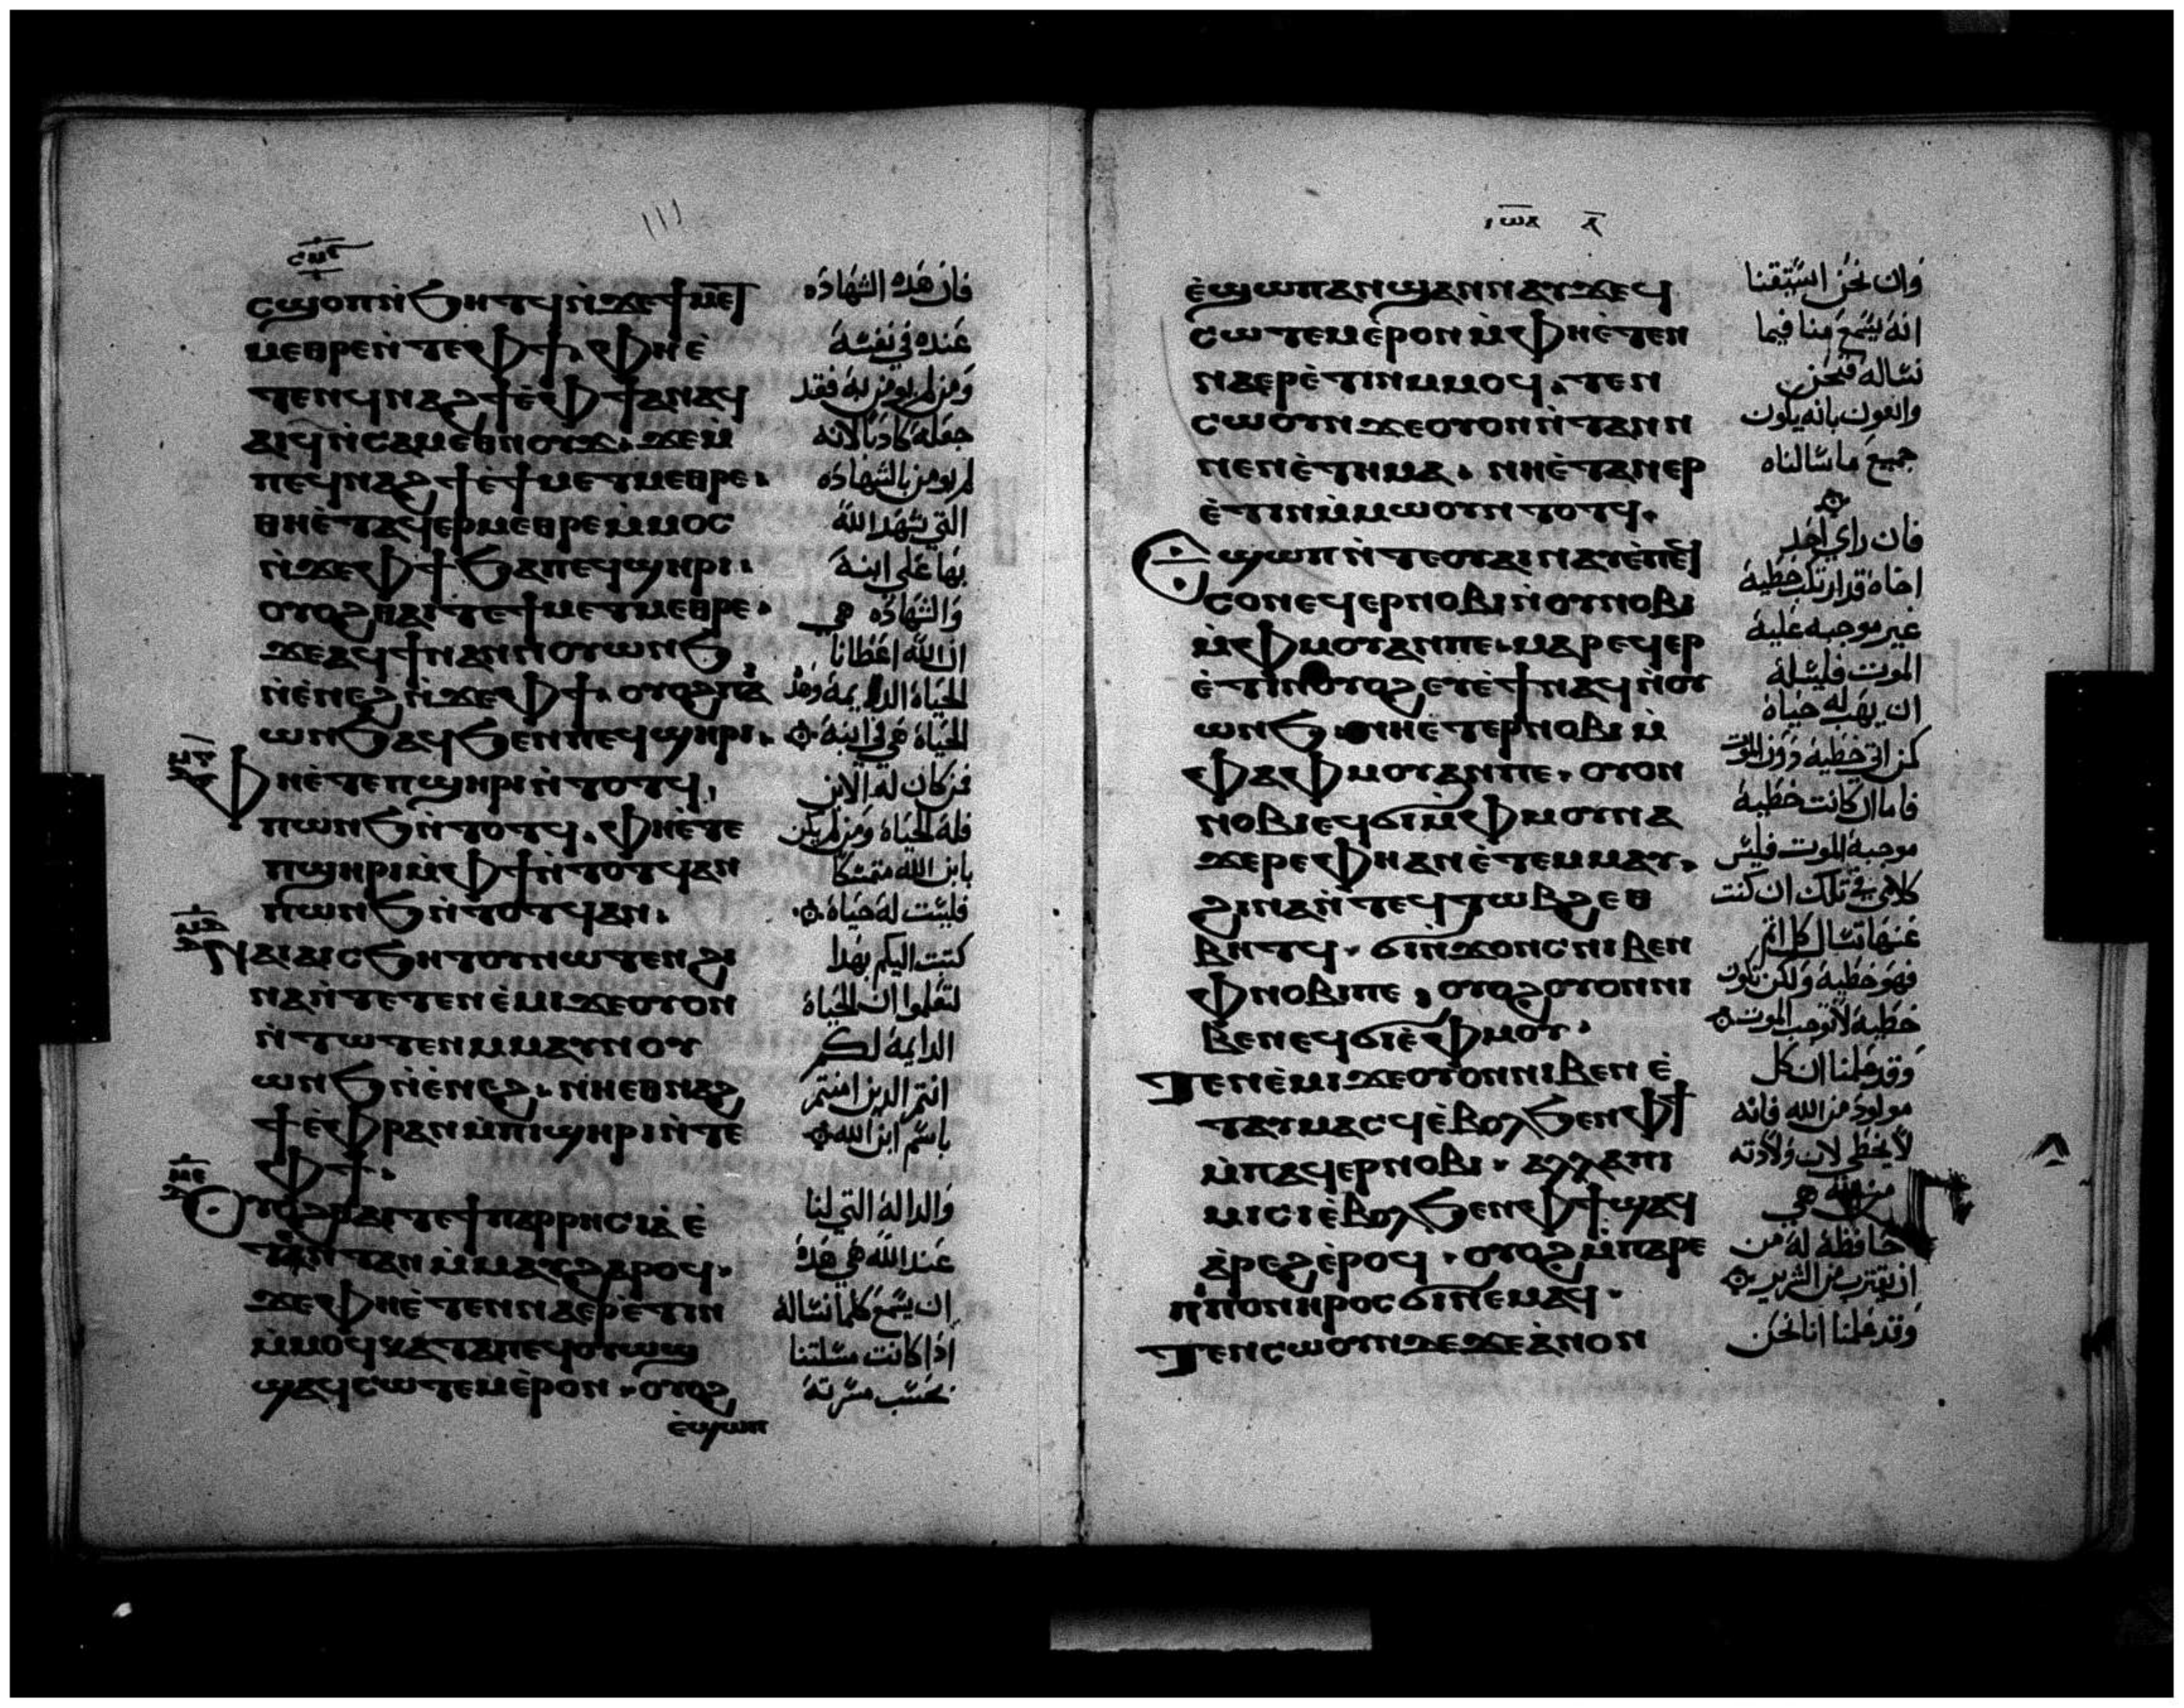 ⲥϣⲟⲡ ⲛ̀ϧⲏⲧϥ ⲛ̀ϫⲉ ϯⲙⲉⲧ
ⲙⲉⲑⲣⲉ ⲛ̀ⲧⲉ ⲫϯ. ⲫⲏ ⲉ̀
ⲧⲉⲛϥⲛⲁϩϯ ⲉ̀ⲫϯ ⲁⲛ ⲁϥ
ⲁⲓϥ ⲛ̀ⲥⲁⲙⲉⲑⲛⲟⲩϫ. ϫⲉ ⲙ̀
ⲡⲉϥⲛⲁϩϯ ⲉ̀ϯⲙⲉⲧⲙⲉⲑⲣⲉ.
ⲑⲏ ⲉ̀ⲧⲁϥⲉⲣⲙⲉⲑⲣⲉ ⲙ̀ⲙⲟⲥ
ⲛ̀ϫⲉ ⲫϯ ϧⲁ ⲡⲉϥϣⲏⲣⲓ.
ⲟⲩⲟϩ ⲑⲁⲓ ⲧⲉ ϯⲙⲉⲧⲙⲉⲑⲣⲉ.
ϫⲉ ⲁϥϯ ⲛⲁⲛ ⲛⲟⲩⲱⲛϧ
ⲛ̀ⲉ̀ⲛⲉϩ ⲛ̀ϫⲉ ⲫϯ. ⲟⲩⲟϩ ⲡⲁ
ⲱⲛϧ ⲁϥϧⲉⲛ ⲡⲉϥϣⲏⲣⲓ.
ⲫⲏ ⲉ̀ⲧⲉ ⲡϣⲏⲣⲓ ⲛ̀ⲧⲟⲧϥ,
ⲡⲱⲛϧ ⲛ̀ⲧⲟⲧϥ. ⲫⲏ ⲉ̀ⲧⲉ
ⲡϣⲏⲣⲓ ⲙ̀ⲫϯ ⲛ̀ⲧⲟⲧϥ ⲁⲛ
ⲡⲱⲛϧ ⲛ̀ⲧⲟⲧϥ ⲁⲛ.
ⲛⲁⲓ ⲁⲓⲥϧⲏⲧⲟⲩ ⲛⲱⲧⲉⲛ ϩⲓ
ⲛⲁ ⲛ̀ⲧⲉⲧⲉⲛⲉ̀ⲙⲓ ϫⲉ ⲟⲩⲟⲛ
ⲛ̀ⲧⲱⲧⲉⲛ ⲙⲙⲁⲩ ⲛⲟⲩ
ⲱⲛϧ ⲛ̀ⲉ̀ⲛⲉϩ. ⲛⲏ ⲉⲑⲛⲁϩ
ϯ ⲉ̀ⲫⲣⲁⲛ ⲙ̀ⲡⲓϣⲏⲣⲓ ⲛ̀ⲧⲉ
ⲫϯ.
ⲟⲩⲟϩ ⲑⲁⲓ ⲧⲉ ϯⲡⲁⲣⲣⲏⲥⲓⲁ̀ ⲉ̀
ⲧⲁⲛ ⲧⲁⲛ ⲙ̀ⲙⲁⲩ ϩⲁⲣⲟϥ.
ϫⲉ ⲫⲏ ⲉ̀ⲧⲉⲛⲛⲁⲉⲣⲉ̀ⲧⲓⲛ
ⲙ̀ⲙⲟϥ ⲕⲁⲧⲁ ⲡⲉϥⲟⲩⲱϣ
ϣⲁϥⲥⲱⲧⲉⲙ ⲉ̀ⲣⲟⲛ. ⲟⲩⲟϩ
ⲉ̀ϣⲱⲡ
فان هذه الشهاده
عنده في نفسه
ومن لم يومن به فقد
جعله كاذبا لانه
لم يومن بالشهاده
التي شهد الله
بها على ابنه
والشهاده هي
ان الله اعطانا
الحياة الدايمة وهذه
الحياة هي في ابنه
فمن كان له الابن
فله الحياة ومن لم يكن
بابن الله متمسكا
فليست له حياة
كتبت اليكم بهذا
لتعلموا ان الحياة
الدايمة لكم
انتم الذين امنتم
باسم ابن الله
والدالة التي لنا
عند الله هي هذه
ان يسمع كلما نساله
اذا كانت مسلتنا
بحسب مسرته
ⲓⲱⲁ ⲁ̄
ⲉ̀ϣⲱⲡ ⲁⲛϣⲁⲛⲛⲁⲩ ϫⲉ ϥ
ⲥⲱⲧⲉⲙ ⲉ̀ⲣⲟⲛ ⲙ̀ⲫⲏ ⲉ̀ⲧⲉⲛ
ⲛⲁⲉⲣⲉ̀ⲧⲓⲛ ⲙⲙⲟϥ. ⲧⲉⲛ
ⲥⲱⲟⲩⲛ ϫⲉ ⲟⲩⲟⲛ ⲛ̀ⲧⲁⲛ ⲛ
ⲛⲉⲛⲉ̀ⲧⲏⲙⲁ. ⲛⲏ ⲉ̀ⲧⲁⲛⲉⲣ
ⲉ̀ⲧⲓⲛ ⲙ̀ⲙⲱⲟⲩ ⲛⲧⲟⲧϥ.
ⲉϣⲱⲡ ⲛ̀ⲧⲉ ⲟⲩⲁⲓ ⲛⲁⲩ ⲉ̀ⲡⲉϥ
ⲥⲟⲛ ⲉϥⲉⲣⲛⲟⲃⲓ ⲛ̀ⲟⲩⲛⲟⲃⲓ
ⲙ̀ⲫⲙⲟⲩ ⲁⲛ ⲡⲉ. ⲙⲁⲣⲉϥⲉⲣ
ⲉ̀ⲧⲓⲛ ⲟⲩⲟϩ ⲉⲩⲉ̀ϯ ⲛⲁϥ ⲛ̀ⲟⲩ
ⲱⲛϧ. ⲛⲏ ⲉⲧⲉⲣⲛⲟⲃⲓ ⲙ̀
ⲫⲁ ⲫⲙⲟⲩ ⲁⲛ ⲡⲉ. ⲟⲩⲟⲛ
ⲛⲟⲃⲓ ⲉϥϭⲓ ⲙ̀ⲫⲙⲟⲩ ⲛⲁ
ϫⲉⲣⲉ ⲫⲏ ⲁⲛ ⲉ̀ⲧⲉⲙⲙⲁⲩ.
ϩⲓⲛⲁ ⲛ̀ⲧⲉϥⲧⲱⲃϩ ⲉⲑ
ⲃⲏⲧϥ. ϭⲓⲛ̀ϫⲟⲛⲥ ⲛⲓⲃⲉⲛ
ⲫⲛⲟⲃⲓ ⲡⲉ, ⲟⲩⲟϩ ⲟⲩⲟⲛ ⲛⲓ
ⲃⲉⲛ ⲉϥϭⲓ ⲉ̀ⲫⲙⲟⲩ.
ⲧⲉⲛⲉ̀ⲙⲓ ϫⲉ ⲟⲩⲟⲛ ⲛⲓⲃⲉⲛ ⲉ̀
ⲧⲁⲩⲙⲁⲥϥ ⲉ̀ⲃⲟⲗ ϧⲉⲛ ⲫϯ
ⲙ̀ⲡⲁϥⲉⲣⲛⲟⲃⲓ. ⲁⲗⲗⲁ ⲡⲓ
ⲙⲓⲥⲓ ⲉ̀ⲃⲟⲗ ϧⲉⲛ ⲫϯ ϣⲁϥ
ⲁ̀ⲣⲉϩ ⲉ̀ⲣⲟϥ. ⲟⲩⲟϩ ⲙ̀ⲡⲁⲣⲉ
ⲡⲓⲡⲟⲛⲏⲣⲟⲥ ϭⲓ ⲛⲉⲙⲁϥ.
ⲧⲉⲛⲥⲱⲟⲩⲛ ⲇⲉ ϫⲉ ⲁ̀ⲛⲟⲛ
وان نحن استيقنا
انه يسمع منا فيما
نساله فنحن
واثقون بانه يكون
جميع ما سالناه
فان راي احد
اخاه قد ارتكب خطية
غير موجبه عليه
الموت فليسله
ان يهب له حياة
كمن اتى خطية دون الموت
فاما ان كانت خطية
موجبة الموت فليس
كلامي في تلك ان كنت
عنها تسال كل اثم
فهو خطية ولكن تكون
خطية لا توجب الموت
وقد علمنا ان كل
مولود من الله فانه
لا يخطي لان ولادته
من الله هي
حافظة له من
ان يقترب من الشرير
وقد علمنا اننا نحن